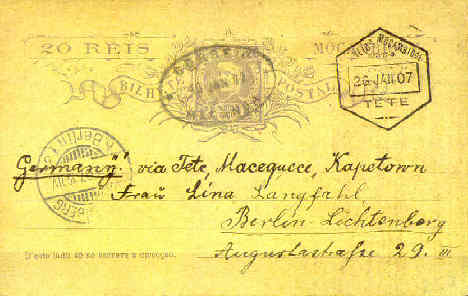 20 RÉIS MOÇAMBIQUE
BILHETE POSTAL
26 JAN 07
TETE
Germany via Tete, Macequece, Kapetown
Frau Lina Langfahl
Berlin-Lichtenberg
Augustastrasse 29. III
D'este lado só se escreve a direcção.